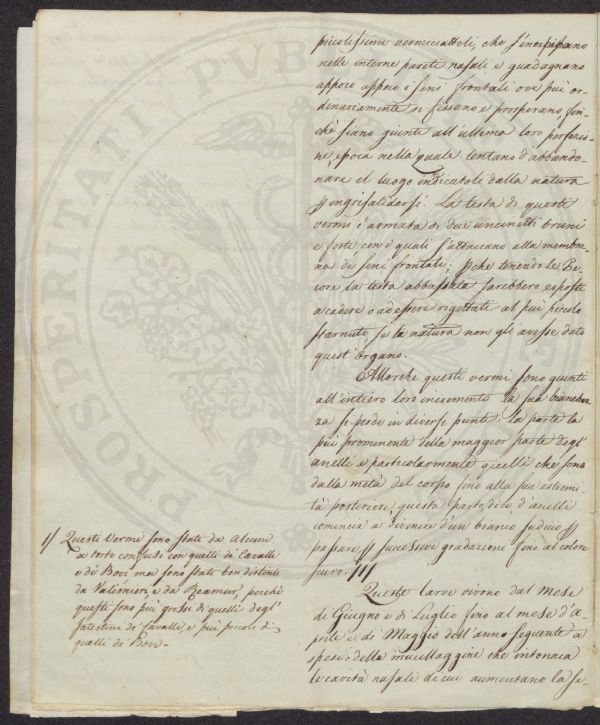 piccolissimi vermiciattoli, che s'inerpicano
nelle interne pareti nasali e guadagnano
appoco appoco i seni frontali ove più or-
dinariamente si fissano e prosperano, fin-
chè siano giunte all'ultima loro perfezio-
ne, epoca nella quale tentano d'abbando-
nare il luogo indicatoli dalla natura
p ingrisalidarsi. La testa di questi
vermi è armata di due uncinetti bruni
e forti con i quali s'attaccano alla membra-
na de' seni frontali; poiche tenendo le Pe-
core la testa abbassata sarebbero esposte
a cadere o ad essere rigettate al più piccolo
starnuto se la natura non gli avesse dato
quest'organo.
Allorche questi vermi sono giunti
all'intiero loro incremento la sua bianchez-
za si perde in diverse punti: la parte la
più prominente della maggior parte degl'
anelli e particolarmente quelli che sono
dalla metà del corpo fino alla sua estremi-
tà posteriore, questa parte dico, d'anelli
comencia a divenire d'un bianco sudicio p
passare p successive gradazione fino al colore
scuro. 1/
Queste larve vivono dal mese
di Giugno e di Luglio fino al mese d'A-
prile e di Maggio dell'anno seguente a
spese della mucillaggine che intonaca
le cavità nasale di cui aumentano la se-
1/ Questi Vermi sono state da alcuni
a torto confusi con quelli de' Cavalli
e de' Bovi ma sono state ben distinte
da Valisnieri, e da Reamur, poichè
questi sono più grossi di quelli degl'
Intestini de' Cavalli, e più piccoli di
quelli de' Bovi-
PROSPERITATI PUBLI